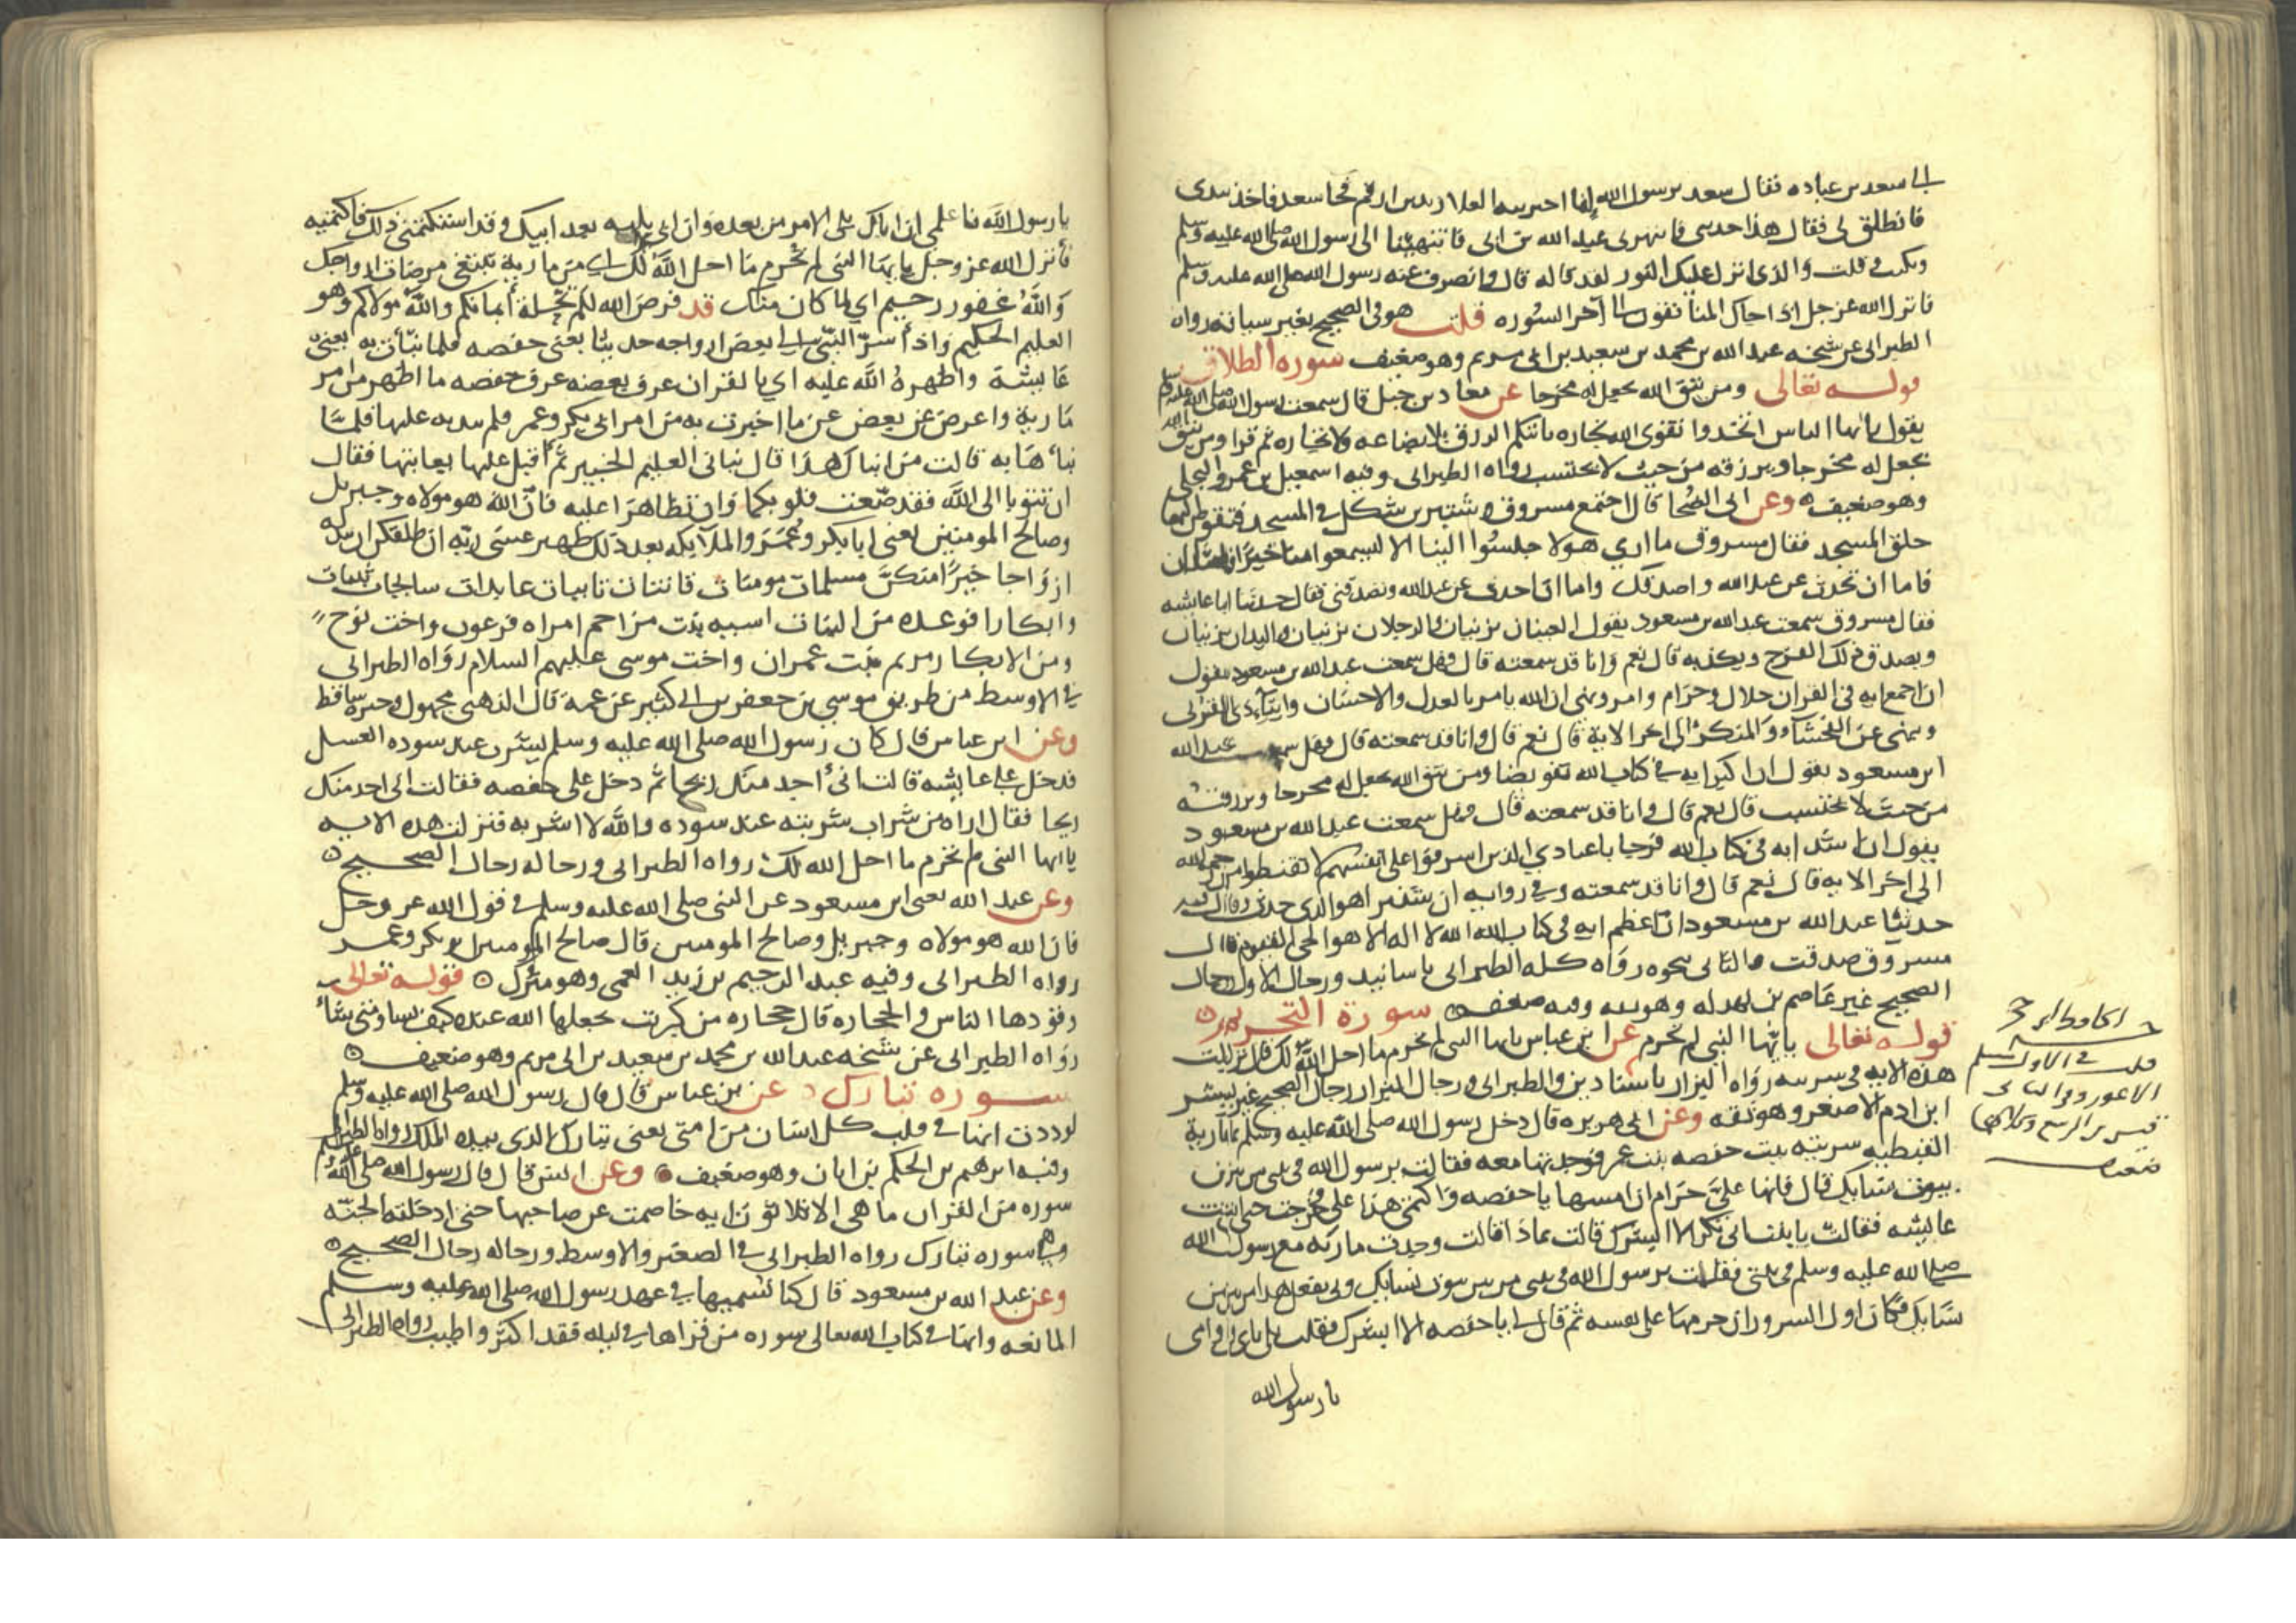 الى سعد بن عباده فقال سعد يرسول الله إنما اخبرنيه الغلام زيد بن ارقم فجا سعد فاخذ بيدى
فانطلق بى فقال هذا حدثنى فانتهرنى عبد الله بن ابى فانتهيت الى رسول الله صلى الله عليه وسلم
وبكيت وقلت والذى انزل عليك النور لقد قاله قال وانصرف عنه رسول الله صلى الله عليه وسلم
فانزل الله عز وجل اذا جاك المنافقون الى آخر السوره قلت هو فى الصحيح بغير سياقه رواه
الطبرانى عن شيخه عبد الله بن محمد بن سعيد بن ابى مريم وهو ضعيف سورة الطلاق
قوله تعالى ومن يتق الله يجعل له مخرجا عن معاذ بن جبل قال سمعت رسول الله صلى الله عليه وسلم
يقول يا ايها الناس اتخذوا تقوى الله تجاره ياتكم الرزق بلا بضاعه ولا تجاره ثم قرا ومن يتق الله
يجعل له مخرجا ويرزقه من حيث لا يحتسب رواه الطبرانى وفيه اسمعيل بن عمرو البجلى
وهو ضعيف ه وعن ابى الضحا قال اجتمع مسروق وشتير بن شكل فى المسجد فتقوض اليهما
حلق المسجد فقال مسروق ما ارى هولا جلسوا الينا الا ليسمعوا منا خيرا
فاما ان تحدث عن عبد الله واصدقك واما ان احدث عن عبد الله وتصدقنى فقال حدثنا ابا عايشه
فقال مسروق سمعت عبد الله بن مسعود يقول العينان يزنيان والرجلان يزنيان واليدان يزنيان
ويصدق ذلك الفرج ويكذبه قال نعم وانا قد سمعته قال وهل سمعت عبد الله بن مسعود يقول
ان اجمع ايه فى القران حلال وحرام وامر ونهى ان الله يامر بالعدل والاحسان وايتآء ذى القربى
وينهى عن الفحشآء والمنكر الى اخر الاية قال نعم قال وانا قد سمعته قال وهل سمعت عبد الله
ابن مسعود يقول ان اكبر ايه فى كتاب الله تفويضا ومن يتق الله يجعل له مخرجا ويرزقه
من حيث لا يحتسب قال نعم قال وانا قد سمعته قال وهل سمعت عبد الله بن مسعود
يقول ان اشد ايه فى كتاب الله فرحا يا عبادي الذين اسرفوا على انفسهم لا تقنطوا من رحمة الله
الى اخر الايه قال نعم قال وانا قد سمعته وفى روايه ان شتير اهو الذى حدث وقال فيه
حدثنا عبد الله بن مسعود ان اعظم ايه فى كتاب الله الله لا اله الا هو الحى القيوم قال
مسروق صدقت والثانى بنحوه رواه كله الطبرانى باسانيد ورجال الاول رجال
الصحيح غير عاصم بن بهدله وهو ثقه وفيه ضعف ه سورة التحريم ه
قوله تعالى يا ايها النبى لم تحرم عن ابن عباس يا ايها النبى لم تحرم ما احل الله لك قال نزلت
هذه الايه فى سريته رواه البزار باسنادين والطبرانى ورجال البزار رجال الصحيح غير بشر
ابن ادم الاصغر وهو ثقه وعن ابى هريره قال دخل رسول الله صلى الله عليه وسلم بمارية
القبطيه سريته بيت حفصه بنت عمر فوجدتها معه فقالت يرسول الله فى بيتى من بين
بيوت نسايك قال فانها على حرام ان امسها يا حفصه واكتمى هذا على فخرجت حتى اتت
عايشه فقالت يا بنت ابى بكر الا ابشرك قالت بماذا قالت وجدت ماريه مع رسول الله
صلى الله عليه وسلم فى بيتى فقلت يرسول الله فى بيتى من بين بيوت نسايك وبى تفعل هذا من بين
نسايك فكان اول السرور ان حرمها على نفسه ثم قال لى يا حفصه الا ابشرك فقلت بلى بابى وامى
يا رسول الله
قلت فى الاول مسلم
الاعور وفى الثانى
قيس بن الربيع وكلاهما
ضعيف
يا رسول الله فاعلمنى ان اباك يلى الامر من بعده وان ابى يليه بعد ابيك وقد استكتمنى ذلك فاكتميه
فأنزل الله عز وجل يا ايها النبى لم تحرم ما احل الله لك اى من مارية تبتغى مرضات ازواجك
والله غفور رحيم اى لما كان منك قد فرض الله لكم تحلة أيمانكم والله مولاكم وهو
العليم الحكيم واذ أسر النبى الى بعض ازواجه حديثا يعنى حفصه فلما نبأت به يعنى
عايشة واظهره الله عليه اي بالقران عرف بعضه عرف حفصه ما اظهر من امر
مارية واعرض عن بعض عن ما اخبرت به من امر ابى بكر وعمر فلم يبده عليها فلما
نبأها به قالت من انباك هذا قال نبانى العليم الخبير ثم أقبل عليها يعاتبها فقال
ان تتوبا الى الله فقد صغت قلوبكما وان تظاهرا عليه فان الله هو مولاه وجبريل
وصالح المومنين يعنى ابا بكر وعمر والملايكه بعد ذلك ظهير عسى ربه ان طلقكن ان يبدله
ازواجا خيرا منكن مسلمات مومنات قانتات تايبات عابدات سايحات ثيبات
وابكارا فوعده من الثيبات اسيه بنت مزاحم امراه فرعون واخت نوح
ومن الابكار مريم بنت عمران واخت موسى عليهم السلام رواه الطبرانى
فى الاوسط من طريق موسى بن جعفر بن ابى كثير عن عمه قال الذهبى مجهول وخبره ساقط
وعن ابن عباس قال كان رسول الله صلى الله عليه وسلم يشرب عند سوده العسل
فدخل على عايشه قالت انى أجد منك ريحا ثم دخل على حفصه فقالت انى اجد منك
ريحا فقال اراه من شراب شربته عند سوده والله لا اشربه فنزلت هذه الايه
يا ايها النبى لم تحرم ما احل الله لك رواه الطبرانى ورجاله رجال الصحيح ه
وعن عبد الله يعنى ابن مسعود عن النبى صلى الله عليه وسلم فى قول الله عز وجل
فان الله هو مولاه وجبريل وصالح المومنين قال صالح المومنين ابو بكر وعمر
رواه الطبرانى وفيه عبد الرحيم بن زيد العمى وهو متروك ه قوله تعالى
وقودها الناس والحجاره قال حجاره من كبريت جعلها الله عنده كيف يشا ومتى يشأ
رواه الطبرانى عن شيخه عبد الله بن محمد بن سعيد بن ابى مريم وهو ضعيف ه
سوره تبارك عن بن عباس قال قال رسول الله صلى الله عليه وسلم
لوددت انها فى قلب كل انسان من امتى يعنى تبارك الذى بيده الملك رواه الطبرانى
وفيه ابرهيم بن الحكم بن ابان وهو ضعيف ه وعن انس قال قال رسول الله صلى الله عليه وسلم
سوره من القران ما هى الا ثلاثون ايه خاصمت عن صاحبها حتى ادخلته الجنة
وهى سوره تبارك رواه الطبرانى فى الصغير والاوسط ورجاله رجال الصحيح ه
وعن عبد الله بن مسعود قال كنا نسميها فى عهد رسول الله صلى الله عليه وسلم
المانعه وانها فى كتاب الله تعالى سوره من قراها فى ليله فقد اكثر واطيب رواه الطبرانى